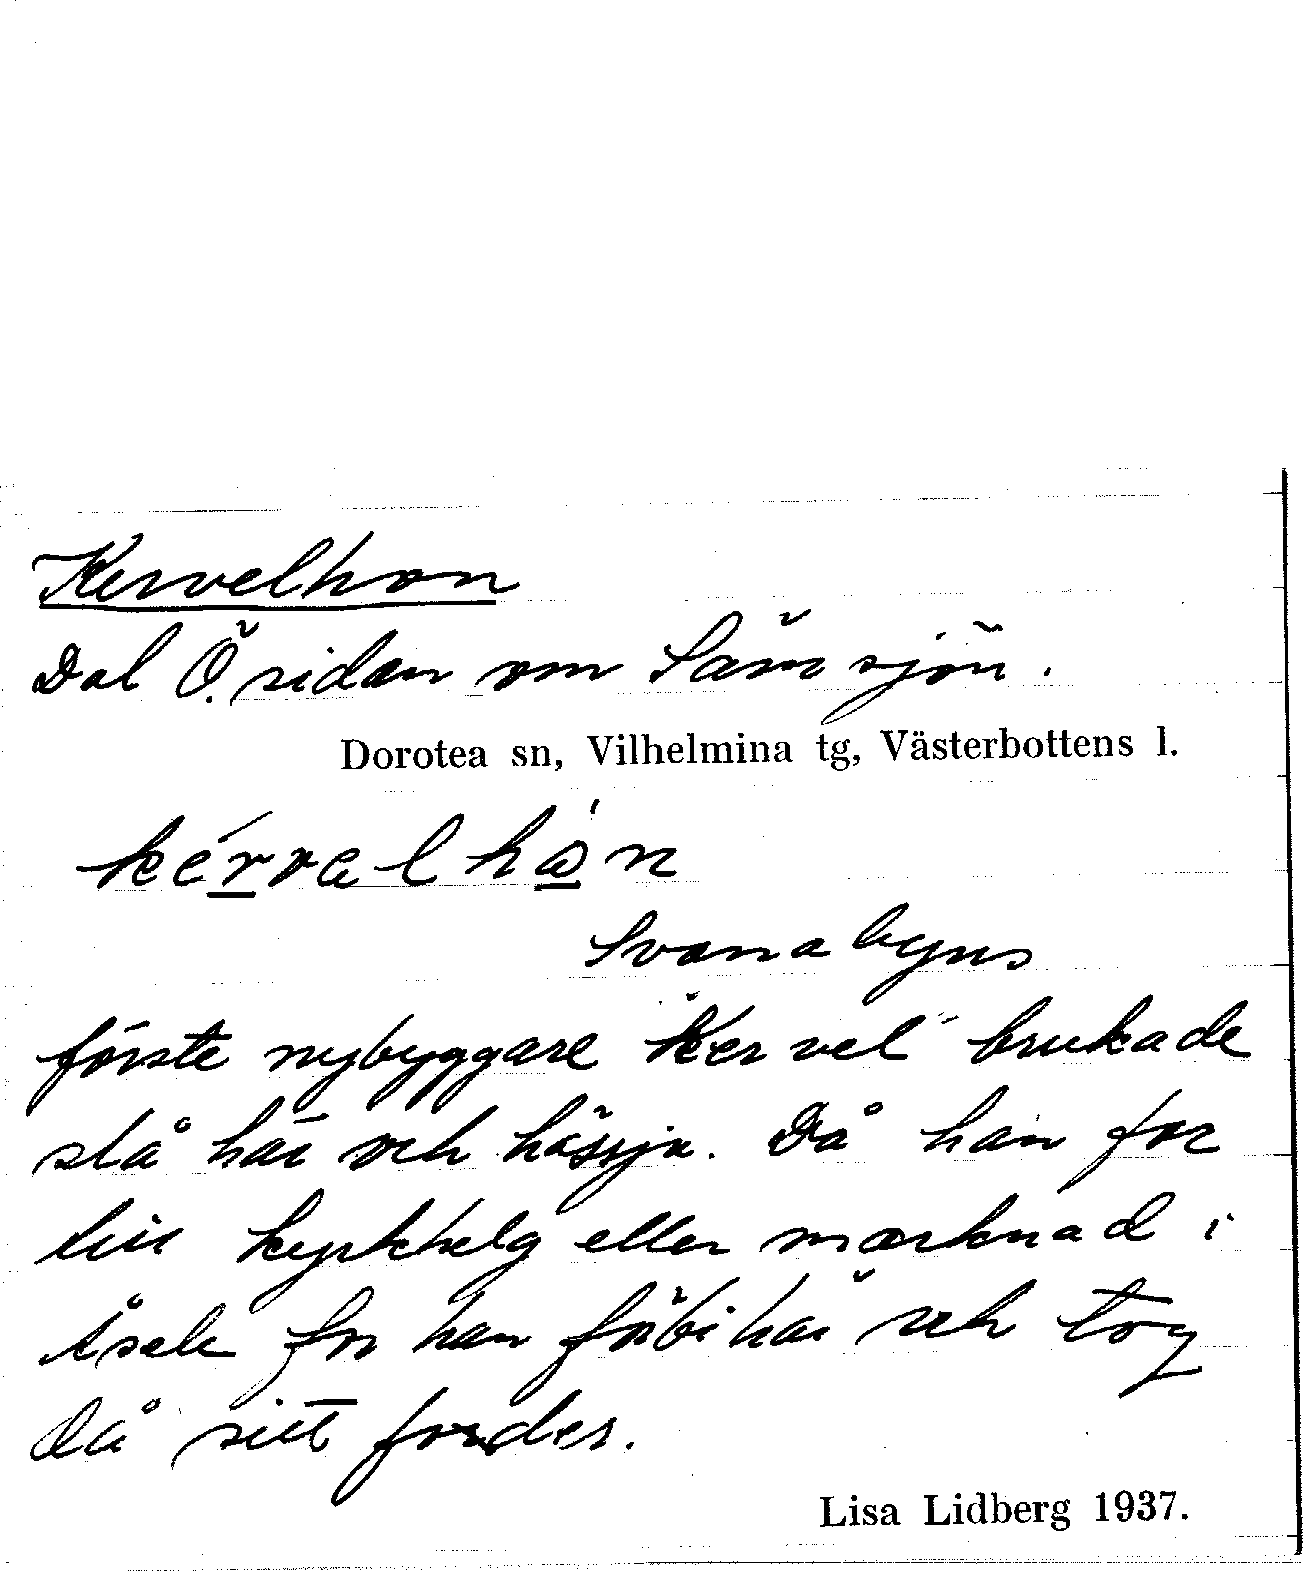 Kervelhon
Dal Ö. sidan om Sämsjön.
Dorotea sn, Vilhelmina tg, Västerbottens l.
Svanabyns
förste nybyggare "Kervel" brukade
slå här och hässja. Då han for
till kyrkhelg eller marknad i
Åsele for han förbi här och tog
då sitt foder.
Lisa Lidberg 1937.